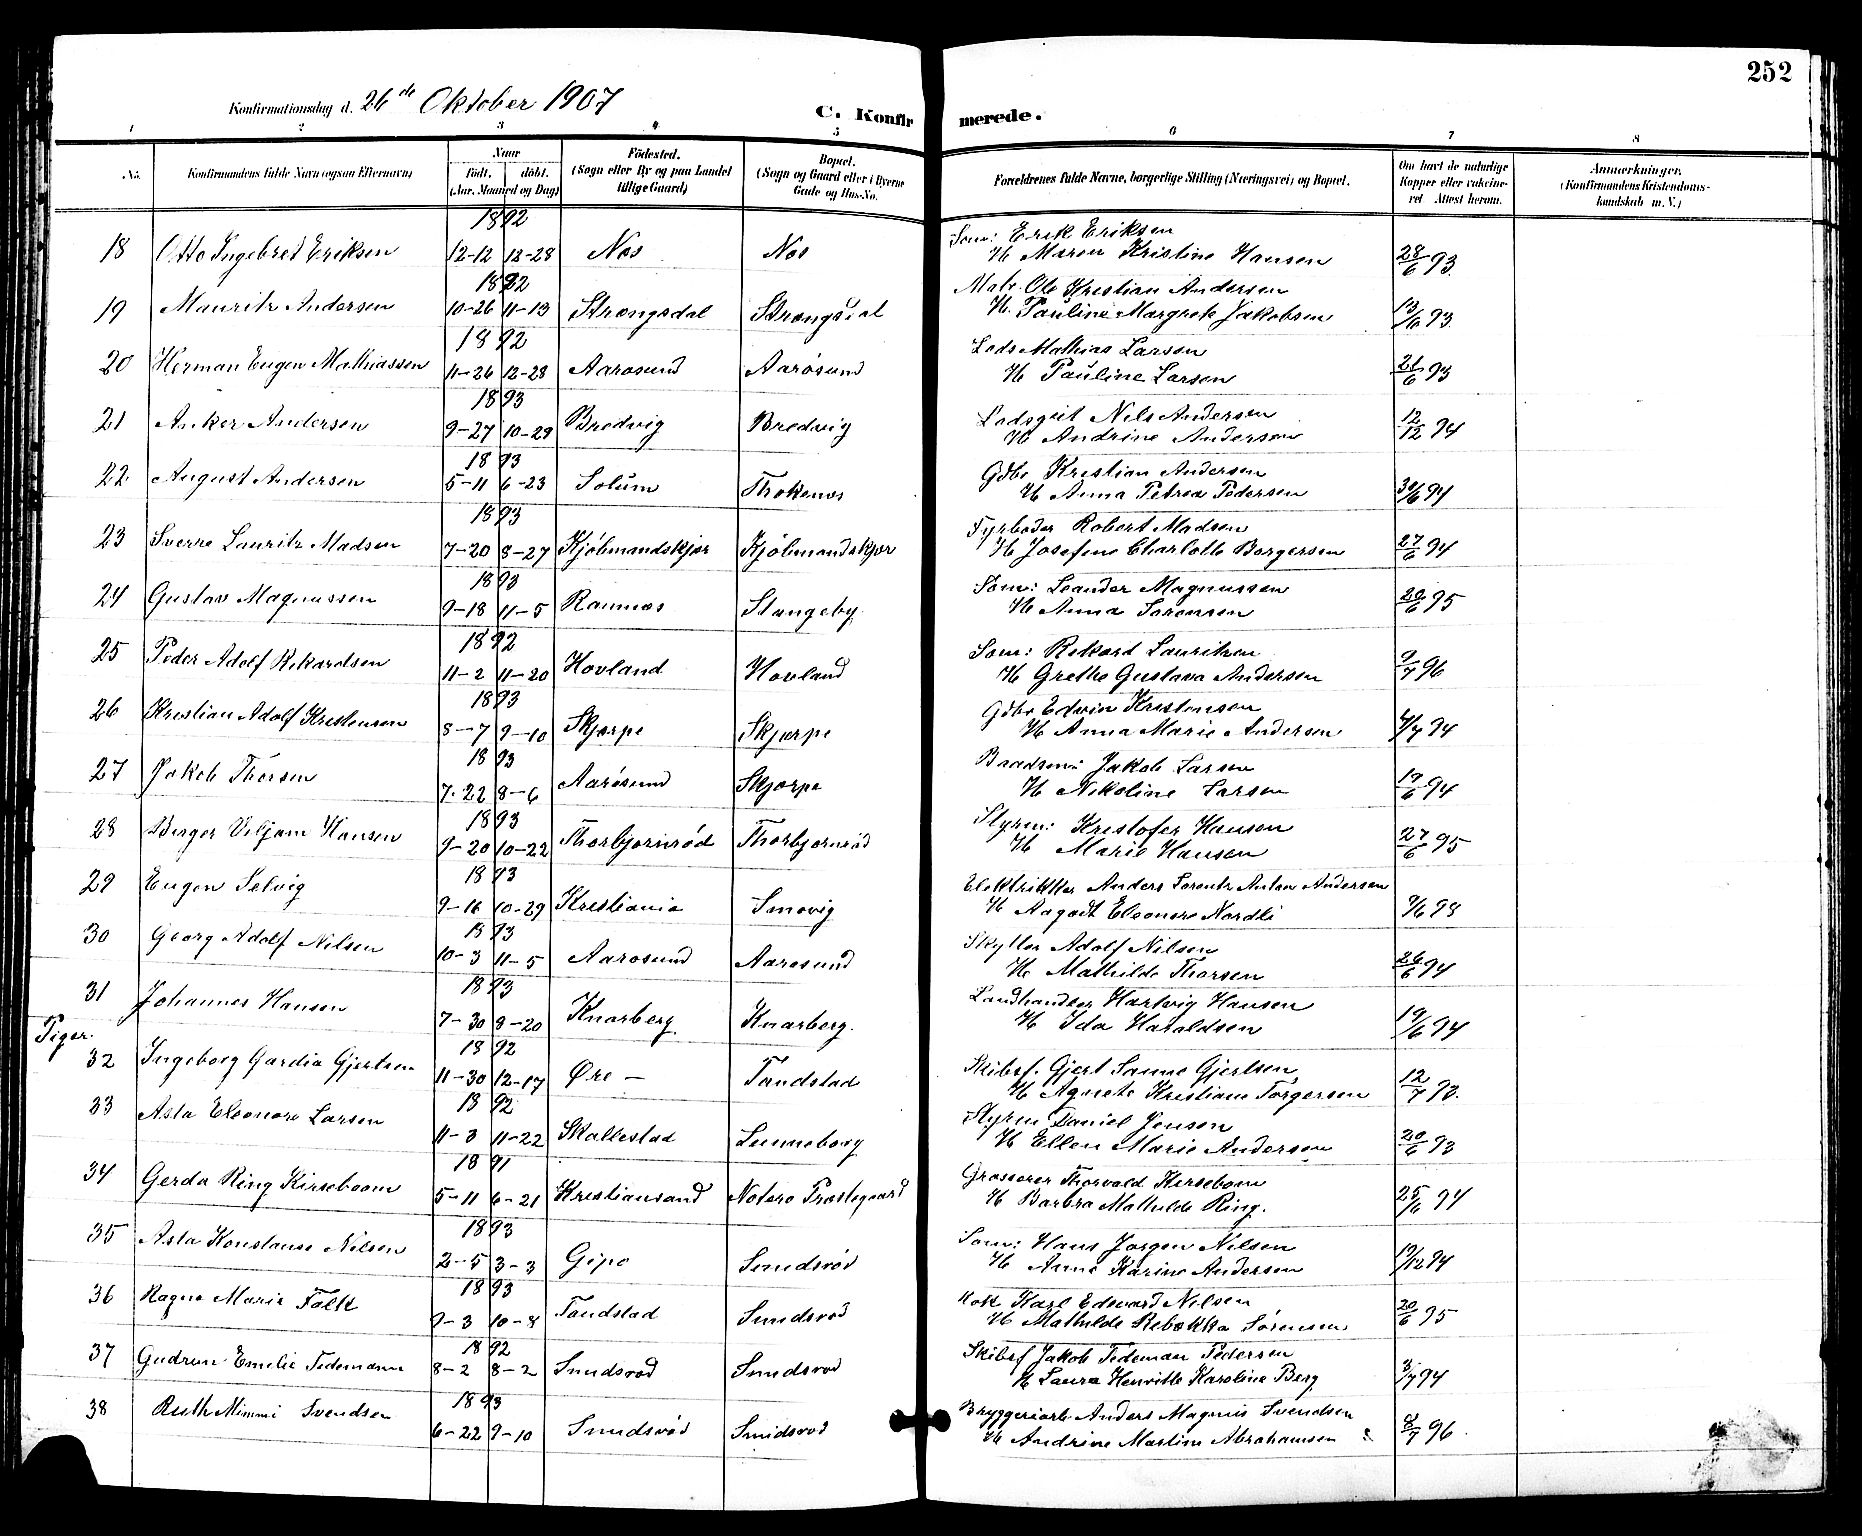 252
Konfirmationsdag d. 26de Oktober 1907
C. Konfir merede.
1 2 3 4 5 6 7 8
No. Konfirmandens fulde Navn (ogsaa Efternavn) Naar Födested. Bopæl. Forældrenes fulde Navne, borgerlige Stilling (Næringsvei) og Bopæl. Om havt de naturlige Anmærkninger.
födt. döbt. (Sogn eller By og paa Landet (Sogn og Gaard eller i Byerne Kopper eller vakcine- (Konfirmandens Kristendoms-
(Aar, Maaned og Dag) tillige Gaard) Gade og Hus-No. ret Attest herom. kundskab m. V.)
1892 Søm: Erik Eriksen
18 Otto Ingebret Eriksen 12-12 12-28 Nes Nes H Maren Kristine Hansen 28/6 93
1892 Matr Ole Kristian Andersen
19 Mauritz Andersen 10-26 11-13 Strængsdal Strængsdal H. Pauline Margrete Jakobsen 13/6 93
1892 Lods Mathias Larsen
20 Herman Eugen Mathiassen 11-26 12-28 Aarøsund Aarøsund H Pauline Larsen 26/6 93
1893 Lodsgut Nils Andersen
21 Anker Andersen 9-27 10-29 Bredvig Bredvig H Andrine Andersen 12/12 94
1893 Gdbr Kristian Andersen
22 August Andersen 5-11 6-23 Solum Thokenes H Anna Petrea Pedersen 30/6 94
1893 Fyrbøder Robert Madsen
23 Sverre Lauritz Madsen 7-20 8-27 Kjøbmandskjær Kjøbmandskjær H Josefine Charlotte Borgersen 27/6 94
1893 Søm: Leander Magnussen
24 Gustav Magnussen 9-18 11-5 Ramnes Stangeby H Anna Sørensen 20/6 95
1892 Søm: Rikard Lauritzen
25 Peder Adolf Rikardsen 11-2 11-20 Hovland Hovland H Grethe Gustava Andersen 9/7 96
1893 Gdbr Edvin Kristensen
26 Kristian Adolf Kristensen 8-7 9-10 Skjærpe Skjærpe H Anna Marie Andersen 4/7 94
1893 Jakob Larsen
27 Jakob Thorsen 7-22 8-6 Aarøsund Skjærpe H Nikoline Larsen 19/6 94
1893 Styrm: Kristofer Hansen
28 Birger Viljam Hansen 9-20 10-22 Thorbjørnrød Thorbjørnrød H Marie Hansen 27/6 95
1893 Elektrikker Anders Lorentz Anton Andersen
29 Eugen Selvig 9-16 10-29 Kristiania Smøvig H Aagodt Eleonore Nordli 9/6 98
1893 Skytter Adolf Nilsen
30 Georg Adolf Nilsen 10-3 11-5 Aarøsund Aarøsund H Mathilde Thorsen 26/6 94
1893 Landhandler Hartvig Hansen
31 Johannes Hansen 7-30 8-20 Knarberg Knarberg. H Ida Haraldsen 19/6 94
Piger.
1892 Skibsf. Gjert Sanne Gjertsen
32 Ingeborg Gardia Gjertsen 11-30 12-17 Øre - Tandstad H Agnete Kristiane Torgersen 12/7 93.
1892 Styrm Daniel Jensen
33 Asta Eleonore Larsen 11-3 11-22 Skallestad Lunneborg H Ellen Marie Andersen 20/6 93
1891 Grosserer Thorvald Kirseboom
34 Gerda Ring Kirseboom 5-11 6-21 Kristiansand Nøterø Præstegaard H Barbra Mathilde Ring. 25/6 94
1893 Søm: Hans Jørgen Nilsen
35 Asta Konstanse Nilsen 2-5 3-3 Gipø Smidsrød H Anne Karine Andersen 19/12 94
1893 Kok Karl Edvard Nilsen
36 Ragna Marie Falk 9-3 10-8 Tandstad Smidsrød H Mathilde Rebekka Sørensen 20/6 95
1892 Skibsf Jakob Tedeman Pedersen
37 Gudrun Emilie Tedemann 8-2 8-2 Smidsrød Smidsrød H Laura Henritte Karoline Berg 3/7 94
1893 Bryggeriarb Anders Magnus Svendsen
38 Ruth Mimmi Svendsen 6-22 9-10 Smidsrød Smidsrød H Andrine Martine Abrahamsen 8/7 96